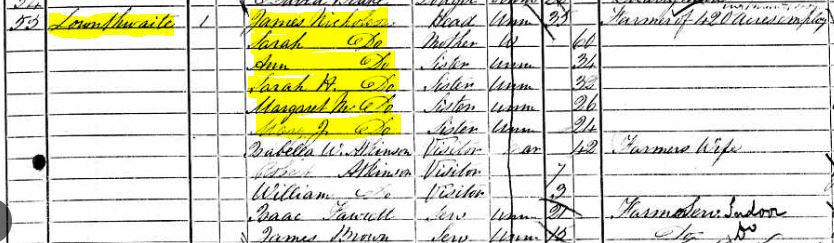 55 Lownthwaite 1 James Nicholson Head Unm 35 Farmer of 420 Acres employ
Sarah Do Mother W 60
Ann Do Sister Unm 34
Sarah H. Do Sister Unm 32
Margaret M. Do Sister Unm 26
Mary J. Do Sister Unm 24
Isabella W. Atkinson Visitor Mar 42 Farmers Wife
Atkinson Visitor 7
William Do Visitor 3
Isaac Fawcett Serv Unm 21 Farm Serv Indoor
James Brown Serv Unm Do Do